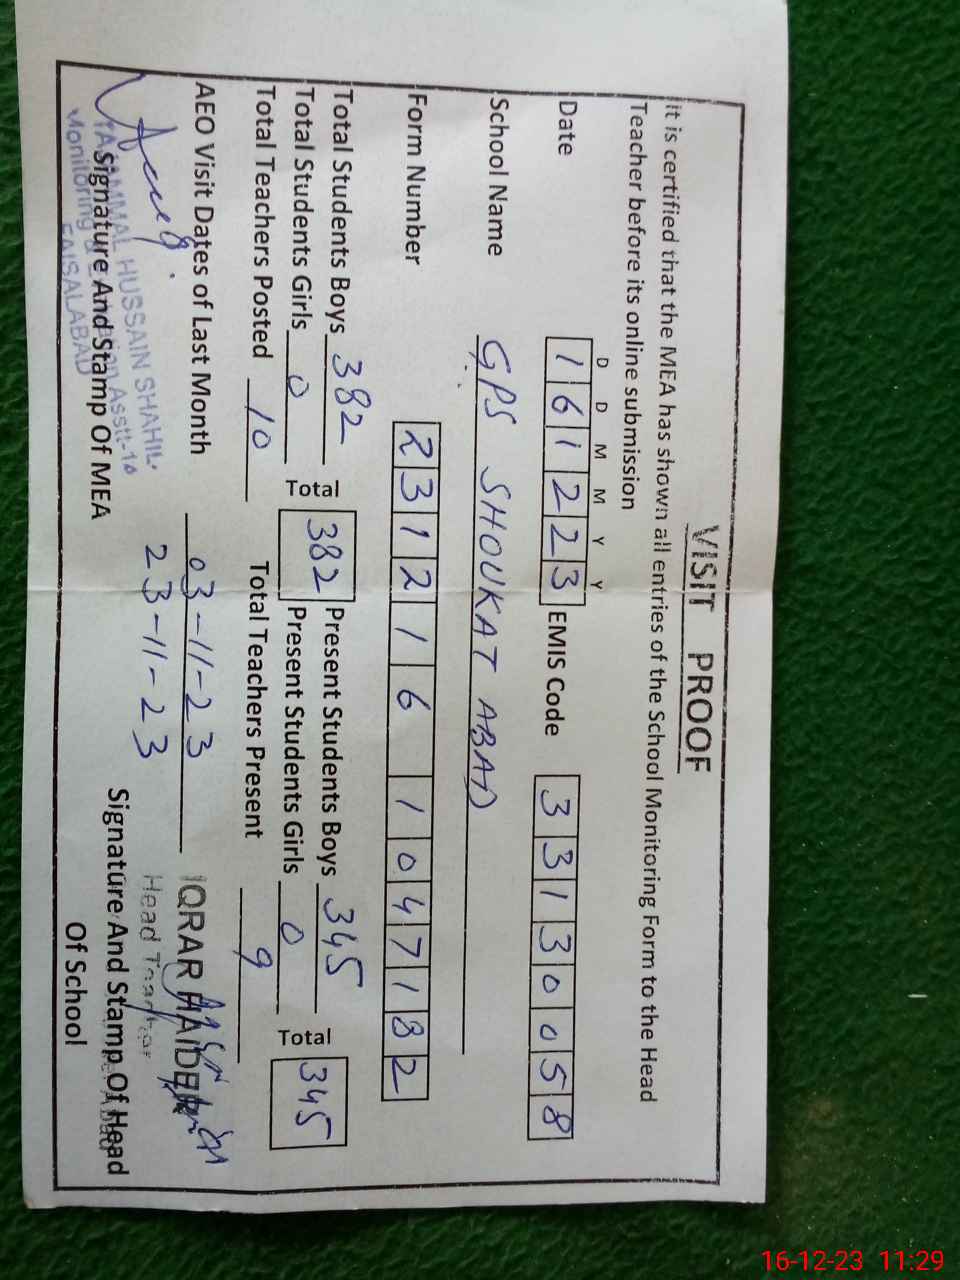 VISIT PROOF
it is certified that the MEA has shown all entries of the School Monitoring Form to the Head
Teacher before its online submission
D D M M Y Y
Date 1 6 1 2 2 3 EMIS Code 3 3 1 3 0 0 5 8
School Name GPS SHOUKAT ABAD
Form Number 2 3 1 2 1 6 1 0 4 7 1 8 2
Total Students Boys 382 Present Students Boys 345
Total 382 Total 345
Total Students Girls 0 Present Students Girls 0
Total Teachers Posted 10 Total Teachers Present 9
AEO Visit Dates of Last Month 03-11-23
23-11-23
IQRAR HAIDER
Head Teacher
TAJAMMAL HUSSAIN SHAHII
Monitoring Asstt-10
FAISALABAD
Signature And Stamp Of MEA
Signature And Stamp Of Head
Of School
16-12-23 11:29